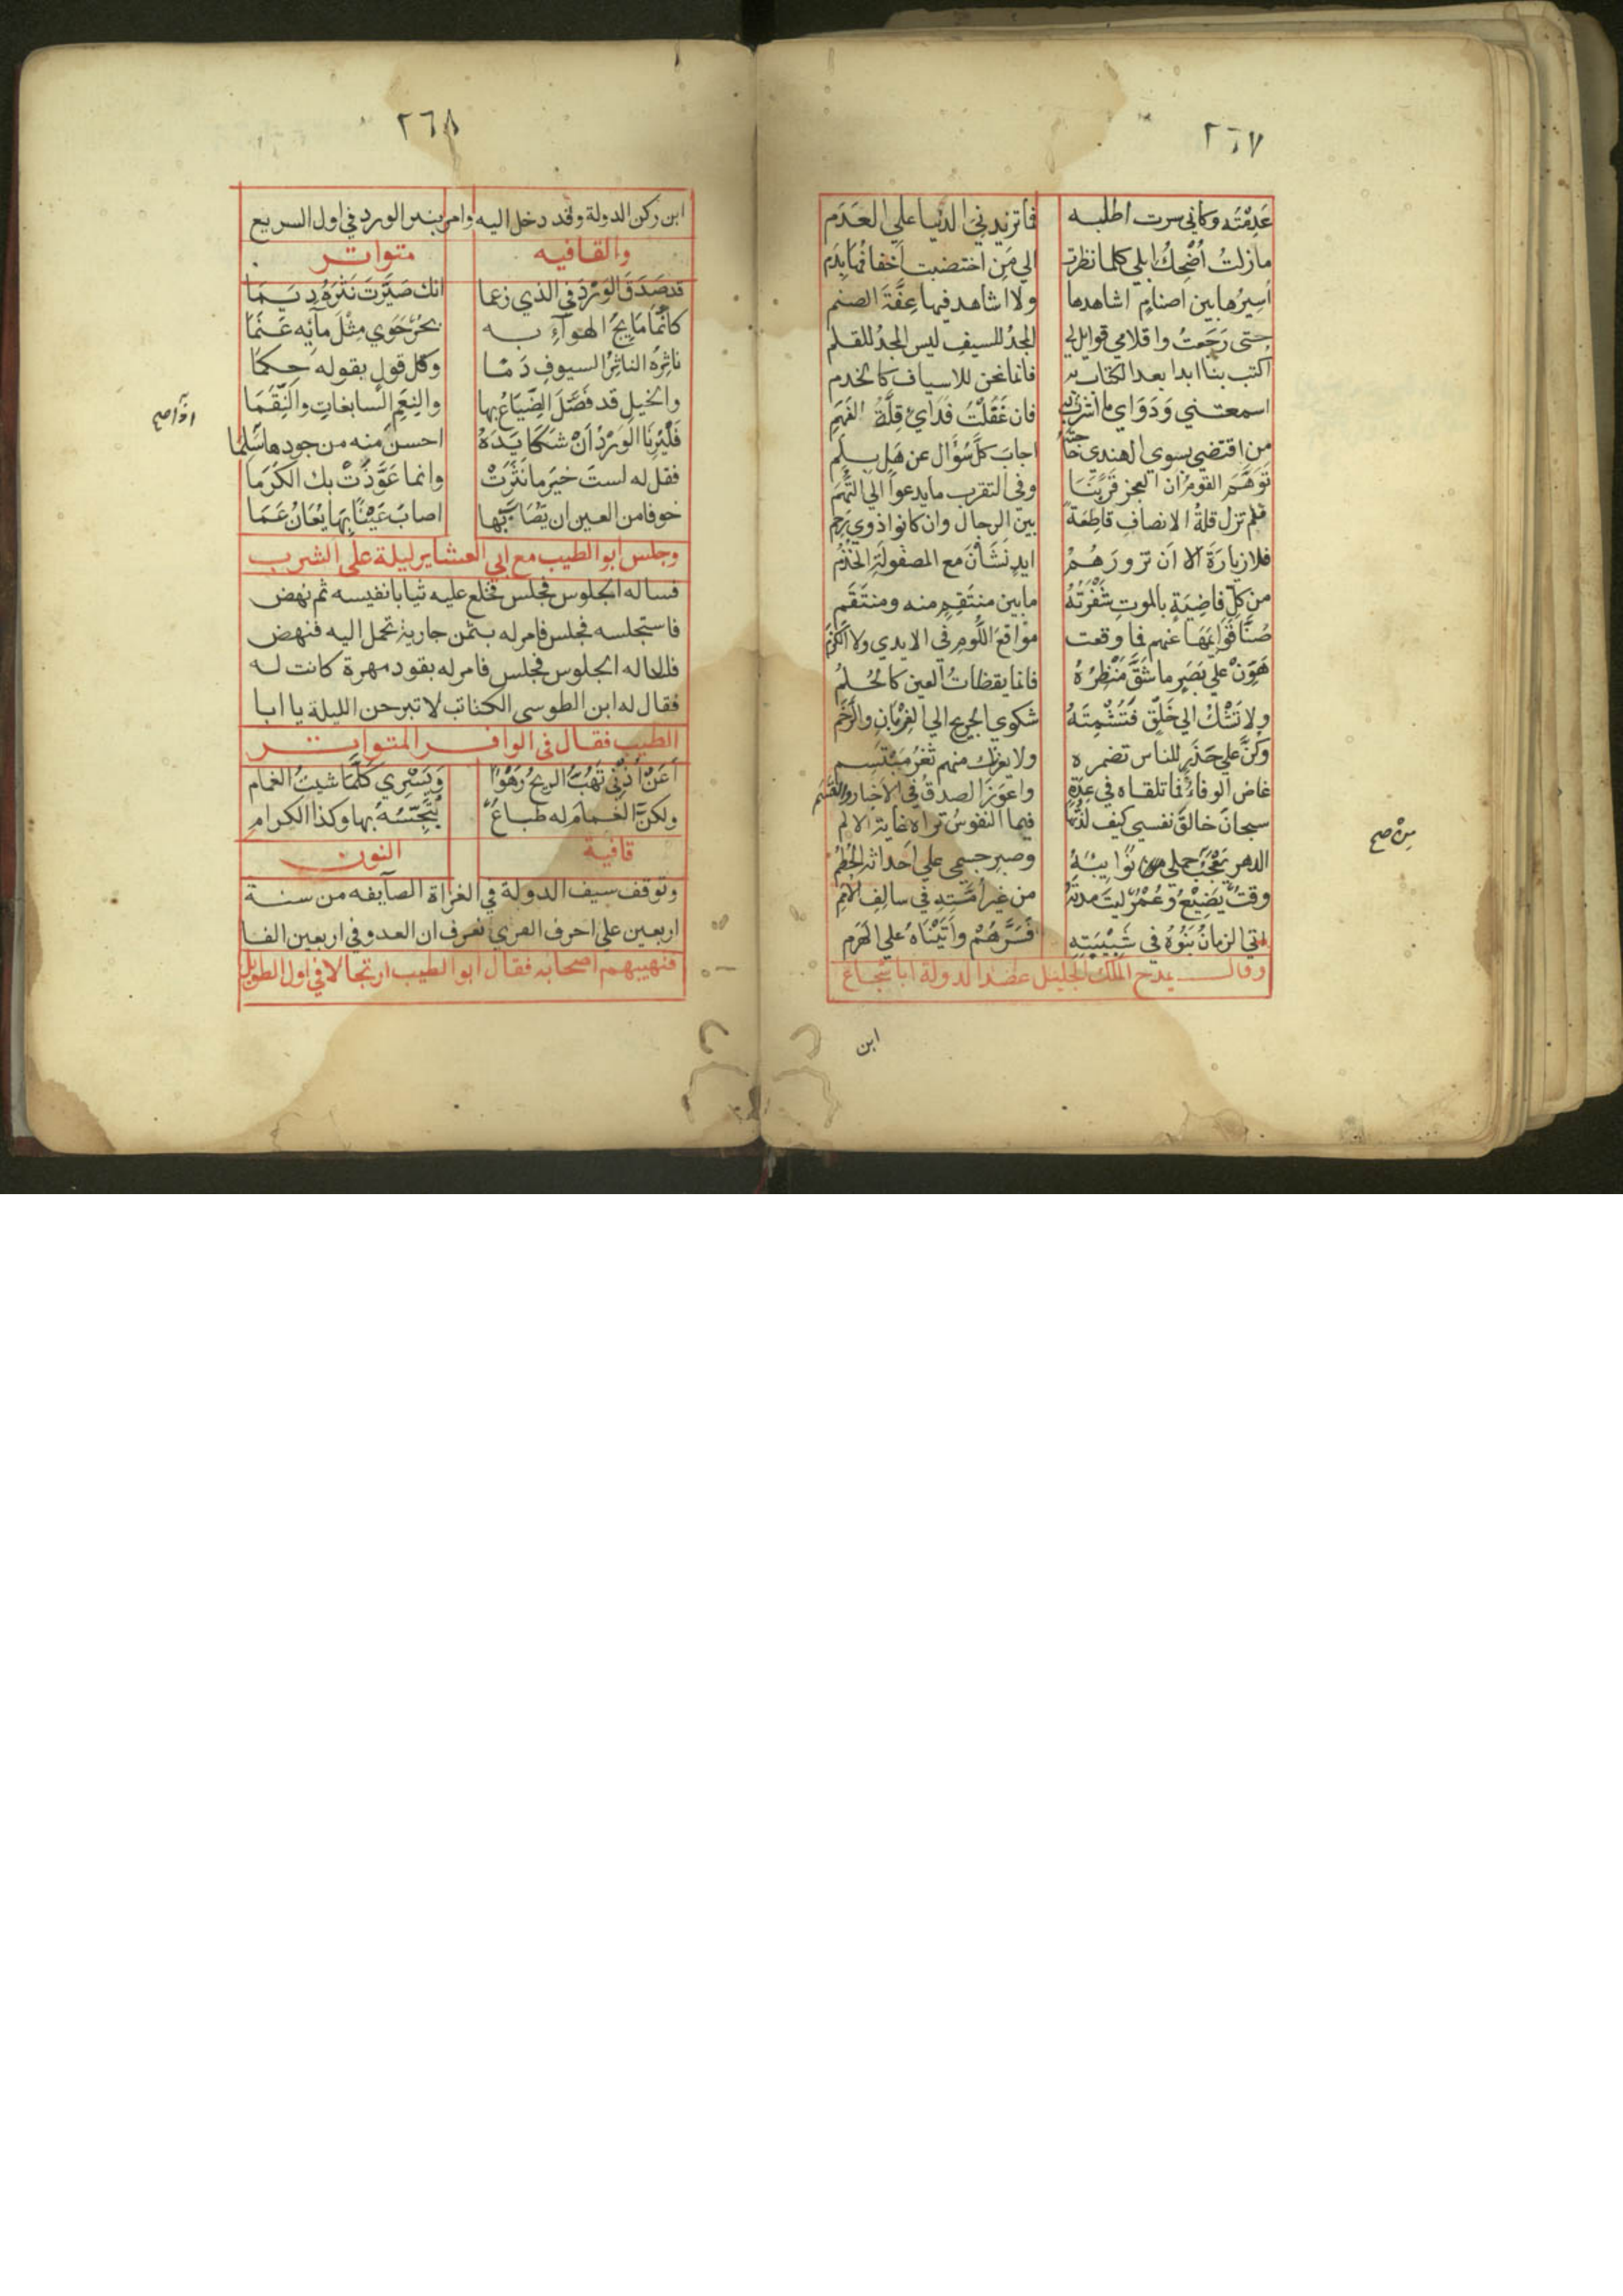 ٢٦٧
عَدِمْتُه وكاني سرت اطلبه فما تزيدني الدنيا علي العَدَم
مازلتُ أُضْحِكُ ابلي كلما نظرت الي مَن اختضبت اخفافُها بِدَم
أسِيرُها بين اصنامٍ اشاهدها ولا اشاهد فيها عِفَّةَ الصنم
حتى رَجَعتُ واقلامي قوايل لي المجدُ للسيفِ ليس المجدُ للقلم
أكتب بنا ابدا بعد الكتاب به فانما نحن للاسياف كالخدم
اسمعتني وَدَوَاي ما اشرت به فان غَفَلْتُ فدَايِ قِلَّةُ الفَهَمِ
من اقتضي بسوي الهندي حاجته اجابَ كلَّ سُؤَالٍ عن هَل بِلَم
تَوَهَّمَ القومُ أن العجز قَرَّبَنَا وفي التقرب ما يدعوا الي التُّهَمِ
فلم تزل قلةُ الانصافِ قاطِعَةً بين الرجال وان كانوا ذوي رَحِم
فلا زيارَةَ الا اَن تزورَهُمُ ايدٍ نَشَأْنَ مع المصقولَةِ الخُذُم
من كلِّ قاضِيَةٍ بالموتِ شَفْرَتُهُ ما بين منتَقِمٍ منه ومنتَقَم
صُنَّا قَوَايِمَهَا عنهم فما وقعت مواقعَ اللُّومِ في الايدي ولا الكَزَم
هَوِّنْ علي بَصَرٍ ما شَقَّ مَنْظَرُهُ فانما يقظاتُ العين كالحُلُم
ولا تَشَكَّ الي خَلْقٍ فَتُشْمِتَهُ شكوي الجريح الي الغِرْبَانِ والرَّخَم
وكن علي حَذَرٍ للناس تضمره ولا يغرك منهم ثَغْرُ مُبْتَسِم
غاض الوفاءُ فما تلقاه في عِدَةٍ واعوَزَ الصدقُ في الاخبار والقَسَم
سبحانَ خالقِ نفسي كيف لذتُها فيما النفوسُ تراه غايةَ الالم
الدهر يَعْجَبُ حملي من نُوايِبَهُ وصبرِ جسمي علي أحداثه الحُطُم
وقتٌ يَضِيْعُ وعُمْرٌ ليتَ مدتَهُ من غيرِ أمَّتِهِ في سالِفِ الأُمَم
اتي الزمانَ بَنُوْهُ في شَبِيْبَتِهِ فَسَرَّهُمْ وأَتَيْنَاهُ علي الهَرَم
وقال يمدح الملك الجليل عضد الدولة ابا شجاع
ابن
مِنْ صح
٢٦٨
ابن ركن الدولة وقد دخل اليه وامر بنثر الورد في اول السريع
والقافيه متواتر
قد صَدَقَ الوَرْدُ في الذي زعما انك صَيَّرتَ نَثْرَهُ دِيَمَا
كانَّمَا مَايِجُ الهَوآءِ به بحرٌ حَوَي مِثْلَ مآئِه عَنَمَا
ناثِرُه الناثِرُ السيوفِ دَمًا وكل قولٍ يقوله حِكَمَا
والخيلِ قد فَصَّلَ الضِّيَاعُ بها والنِعَمِ السابغاتِ والنِّقَمَا
فَلْيُرِنَا الوَرْدُ أنْ شَكَا يَدَهُ احسن منه من جودها سَلِمَا
فقل له لستَ خيرَ ما نَثَرَتْ وانما عَوَّذَتْ بك الكَرَمَا
خوفا من العين ان يُصَابَ بها اصابَ عَيْنًا بِهَا يُعَانُ عَمَا
وجلس ابو الطيب مع ابي العشاير ليلة على الشرب
فساله الجلوس فجلس فخلع عليه ثيابا نفيسه ثم نهض
فاستجلسه فجلس فامر له بثمن جارية تحمل اليه فنهض
فساله الجلوس فجلس فامر له بقود مهرة كانت له
فقال له ابن الطوسي الكتاتب لا تبرحن الليلة يا ابا
الطيب فقال في الوافر المتواتر
أعَنْ اُذُنِي تَهُبُّ الريحُ رَهْوًا وَيَسْرِي كُلَّمَا شيتُ الغمام
ولكنّ الغمام له طباعٌ تَبَجُّسُهُ بها وكذا الكرام
قافية النون
وتوقف سيف الدولة في الغزاة الصآيفه من سنة
اربعين علي احرف القري نعرف ان العدو في اربعين الفا
فتهيبهم اصحابه فقال ابو الطيب ارتجالا في اول الطويل